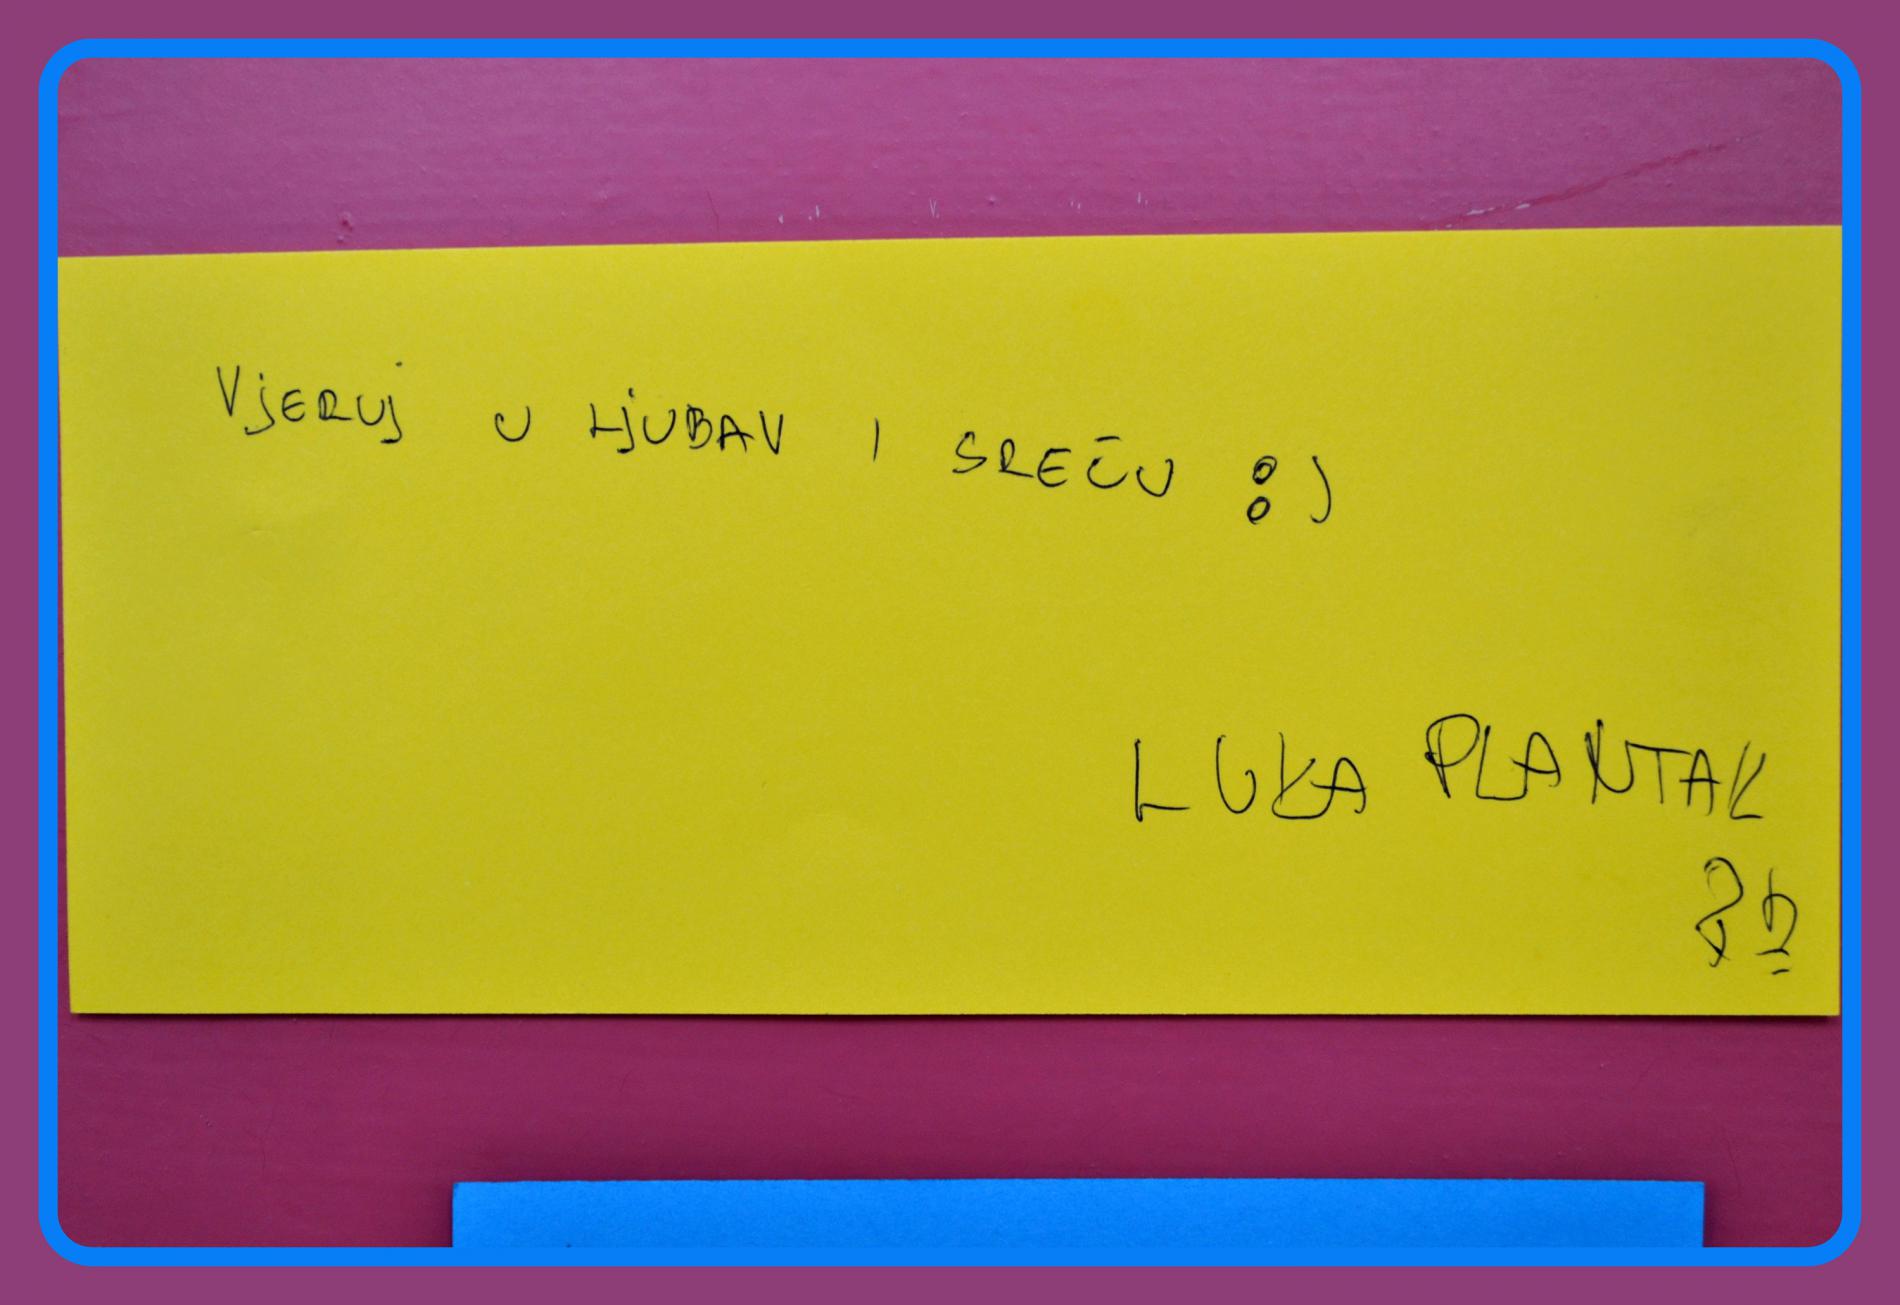 VjERUj U LjUBAV I SREĆU :)
LUKA PLANTAK